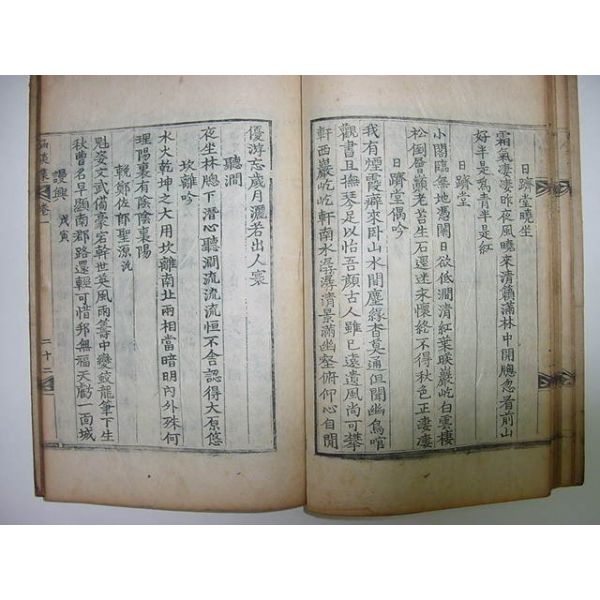 日躋堂曉坐
霜氣凄凄昨夜風曉來淸籟滿林中開牕忽看前山
好半是爲靑半是紅
日躋堂
小閣臨無地憑闌日欲低澗淸紅葉暎巖屹白雲棲
松倒曾巓老苔生石逕迷永懷終不得秋色正凄凄
日躋堂偶吟
我有煙霞癖來卧山水間塵緣杳莫通但聞幽鳥喧
觀書且撫琴足以怡吾顏古人雖已遠遺風尚可攀
軒西巖屹屹軒南水潺潺淸景滿幽壑俯仰心自閒
優游忘歲月灑若出人寰
聽澗
夜坐林牕下潛心聽澗流流流恒不舍認得大原悠
坎離吟
水火乾坤之大用坎離南北兩相當暗明內外殊何
理陽裏有陰陰裏陽
輓鄭佐郎聖源沇
魁姿文武備豪宕幹世英風雨籌中變鮫龍筆下生
秋曹名早顯南郡路還輕可惜邦無福天虧一面城
謾興 戊寅
卷一
二十二